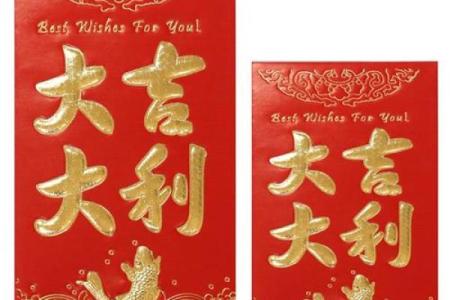 Best Wishes For You!
大吉
大利
Best Wishes For You!
大吉
大利